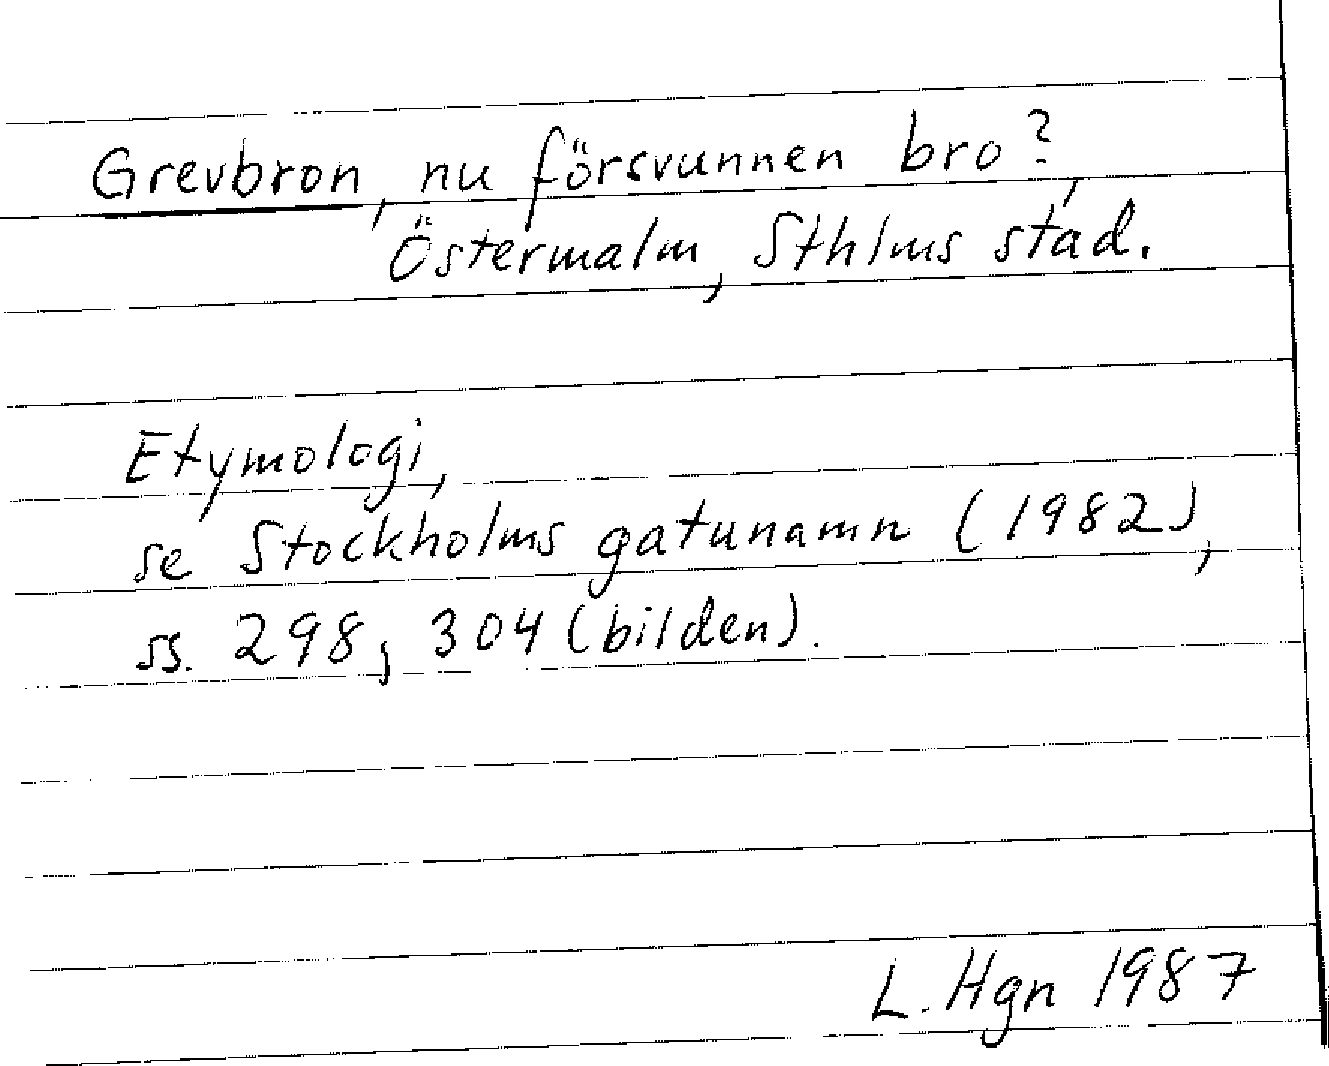 Grevbron, nu försvunnen bro?,
Östermalm, Sthlms stad.
Etymologi,
se Stockholms gatunamn (1982),
ss. 298, 304 (bilden).
L. Hgn 1987